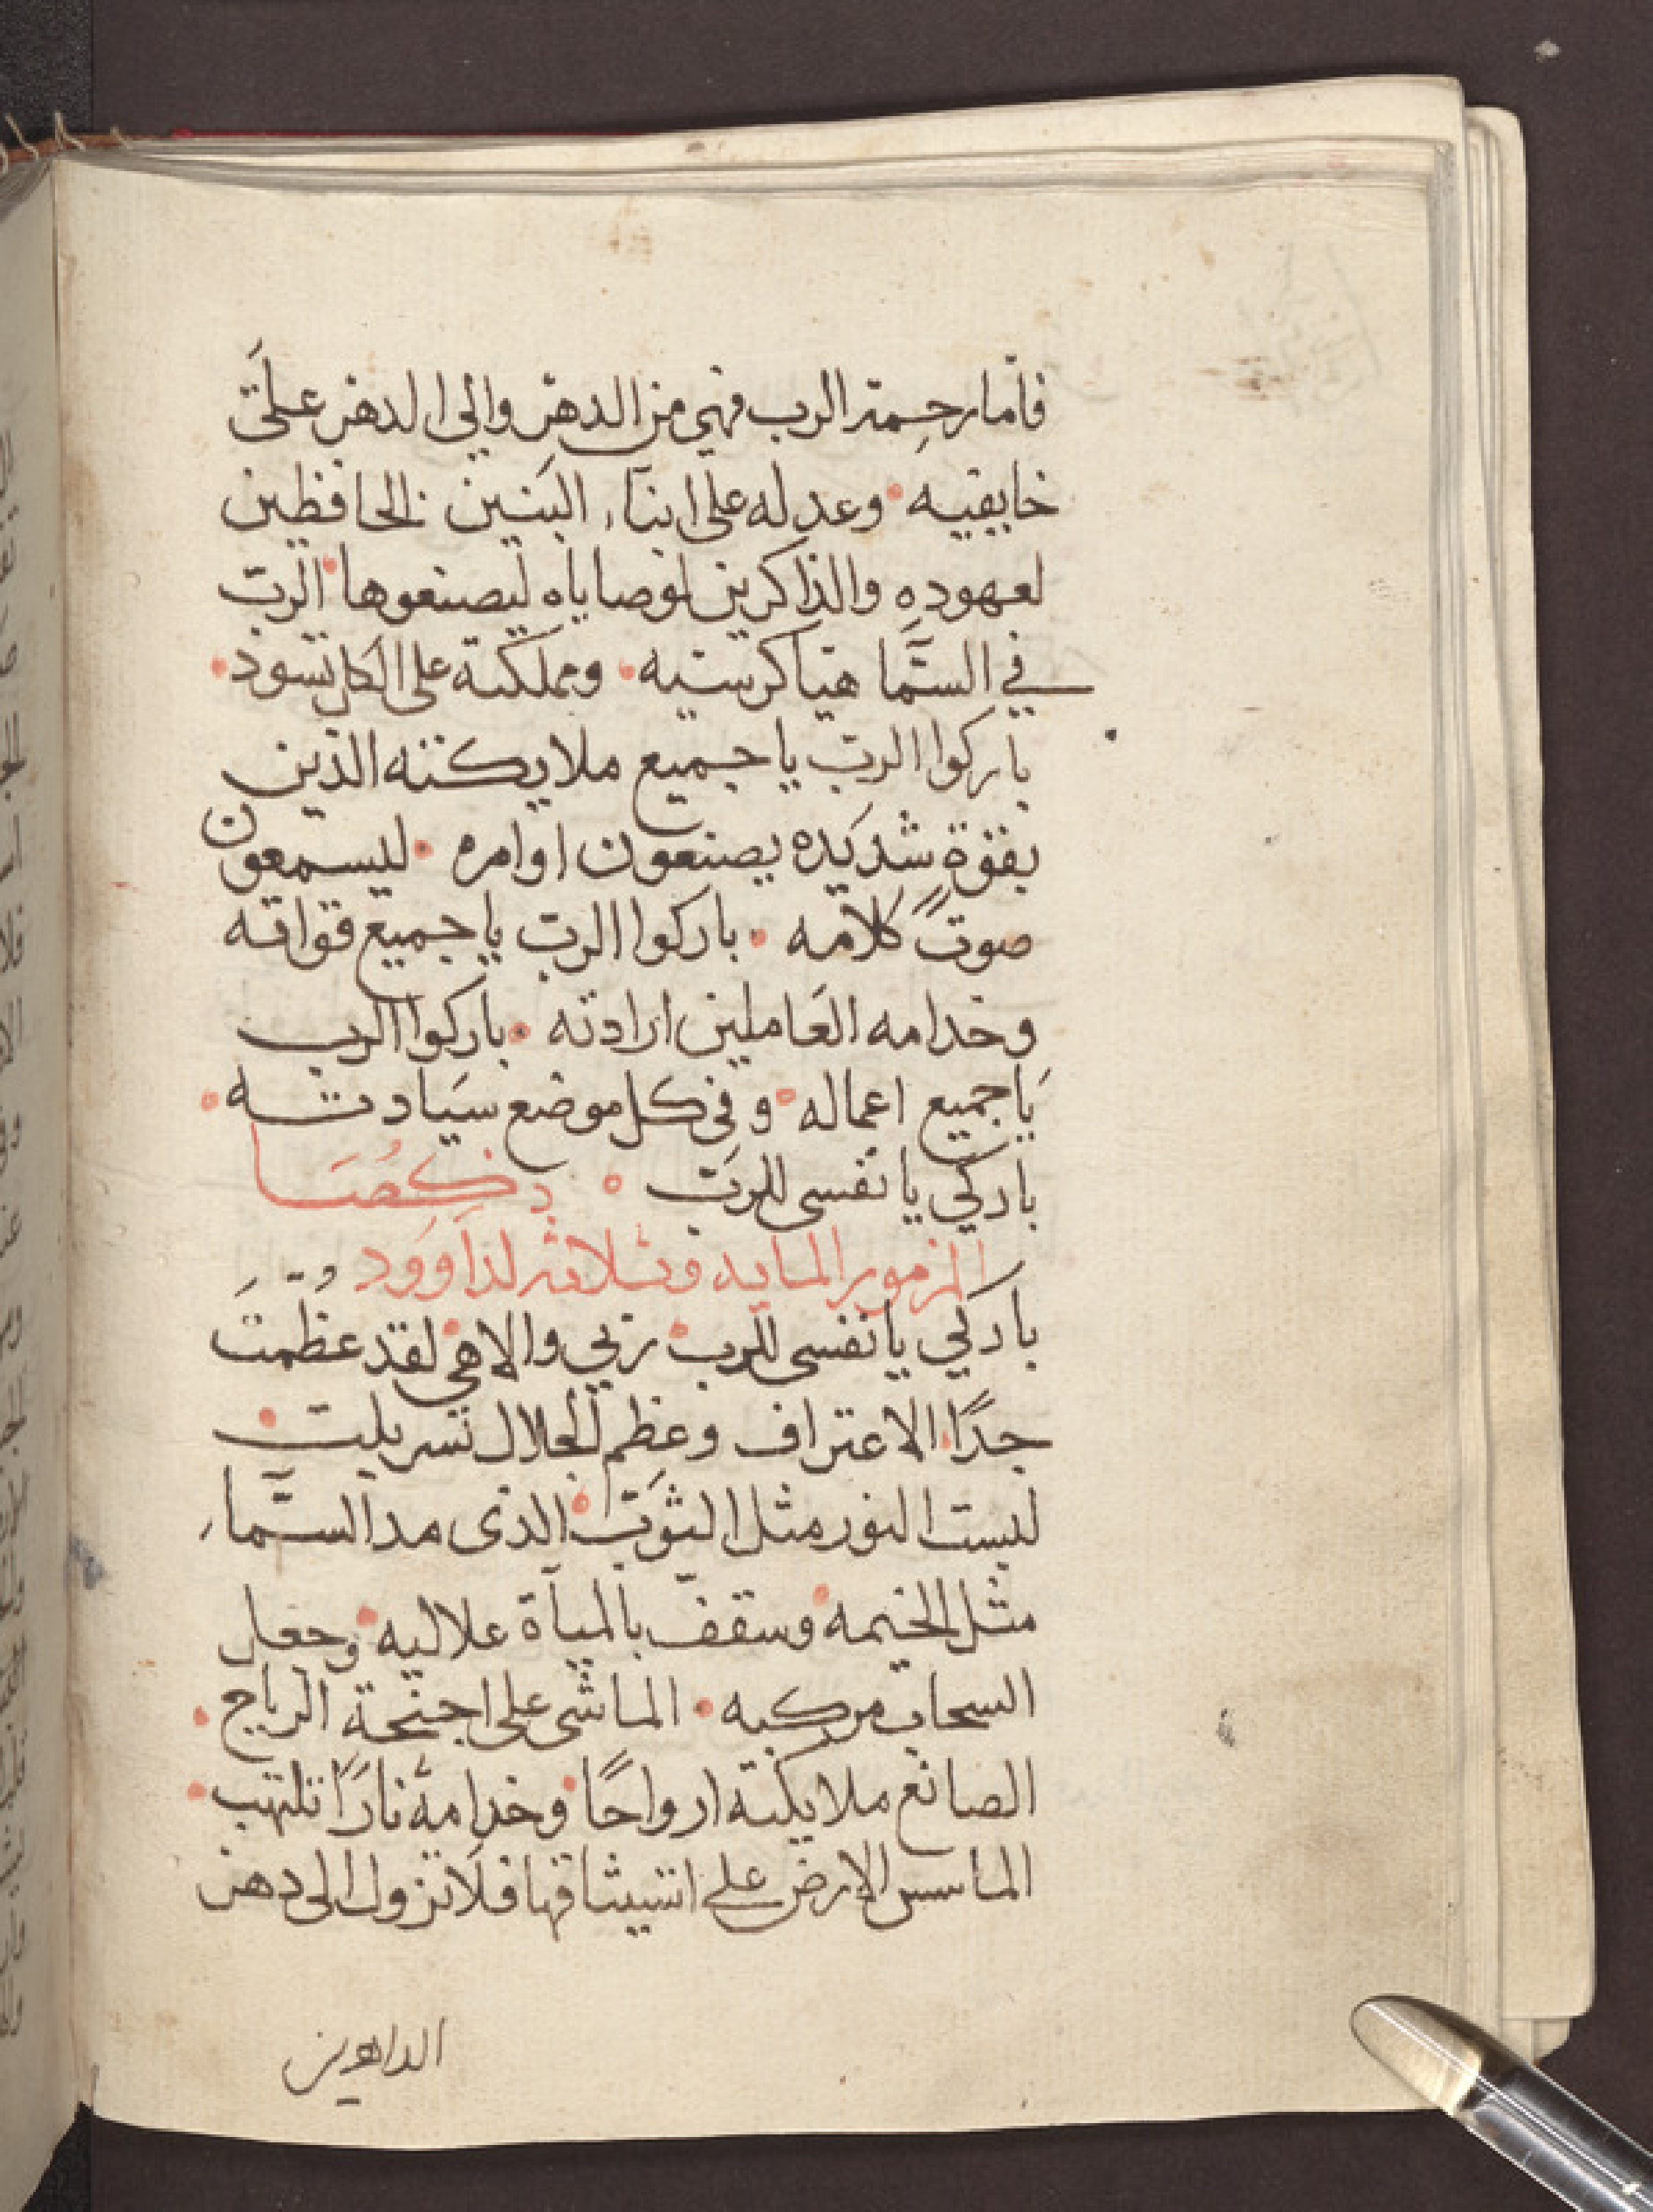 فاما رحمة الرب فهي من الدهر والى الدهر على
خايفيه • وعدله على ابناء البنين الحافظين
لعهوده والذاكرين لوصاياه ليصنعوها • الرب
في السما هيا كرسيه • ومملكته على الكل تسود •
باركوا الرب يا جميع ملايكته الذين
بقوة شديده يصنعون اوامره • ليسمعون
صوت كلامه • باركوا الرب يا جميع قواته
وخدامه العاملين ارادته • باركوا الرب
يا جميع اعماله • وفي كل موضع سيادته •
باركي يا نفسي للرب •
المزمور المايه وثلاثه لداوود
باركي يا نفسي للرب • ربي والاهي لقد عظمت
جدًا • الاعتراف وعظم الجلال تسربلت •
لبست النور مثل الثوب • الذى مد السماء
مثل الخيمه • وسقف بالمياة علاليه • وجعل
السحاب مركبه • الماشى على اجنحة الرياح •
الصانع ملايكته ارواحًا • وخدامه نارًا تلتهب •
الماسس الارض على اثيثاقها فلا تزول الى دهر
الداهرين